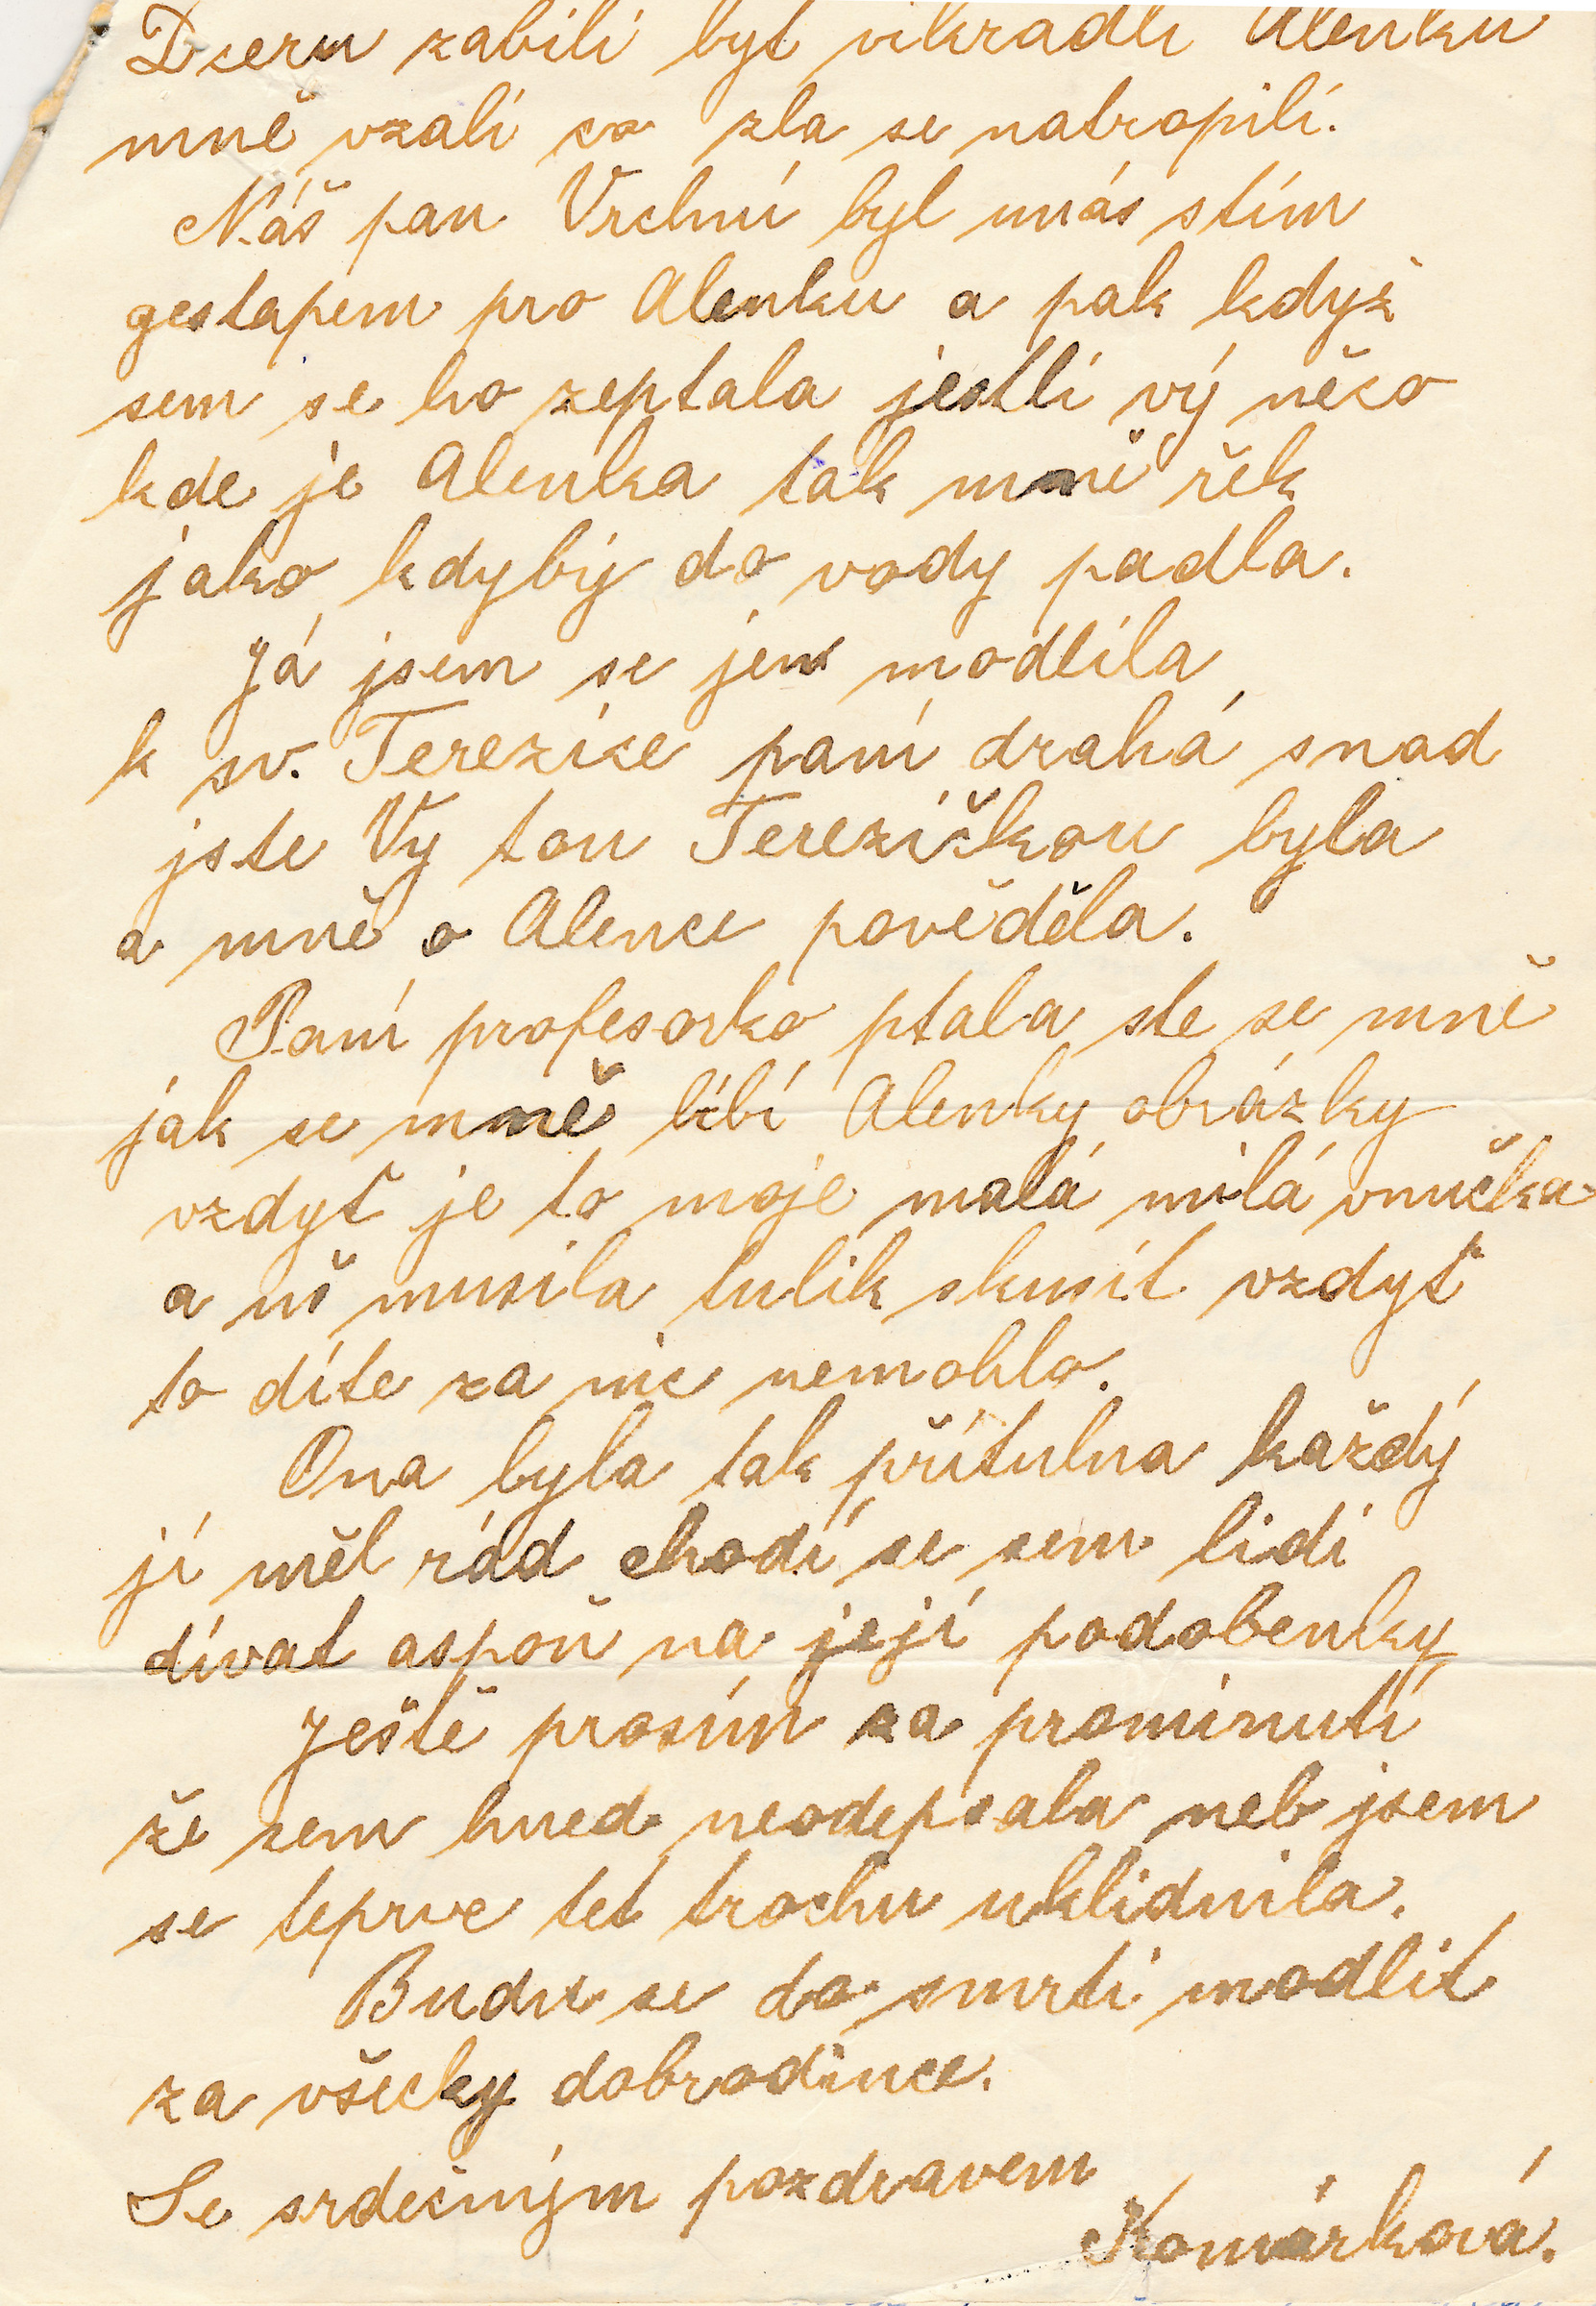 Dceru zabili byt vikradli Alenku
mně vzali co zla se natropili.
Náš pan Vrchní byl unás stím
gestapem pro Alenku a pak když
sem se ho zeptala jestli vý něco
kde je Alenka tak mně řek
jako kdybý do vody padla.
Já jsem se jen modlila
k sv. Terezice paní drahá snad
jste Vy tou Terezičkou byla
a mně o Alence pověděla.
Paní profesorko ptala ste se mně
jak se mně líbí Alenky obrázky
vzdyť je to moje malá milá vnučka
a uš musila tulik skusit vzdyť
to díte za nic nemohlo.
Ona byla tak přítulna každý
jí měl rád chodí se sem lidi
dívat aspoň na její podobenky
Ještě prosím za prominutí
že sem hned neodepsala neb jsem
se teprve teť trochu uklidnila.
Budu se do smrti modlit
za všecky dobrodince.
Se srdečným pozdravem
Komárková.